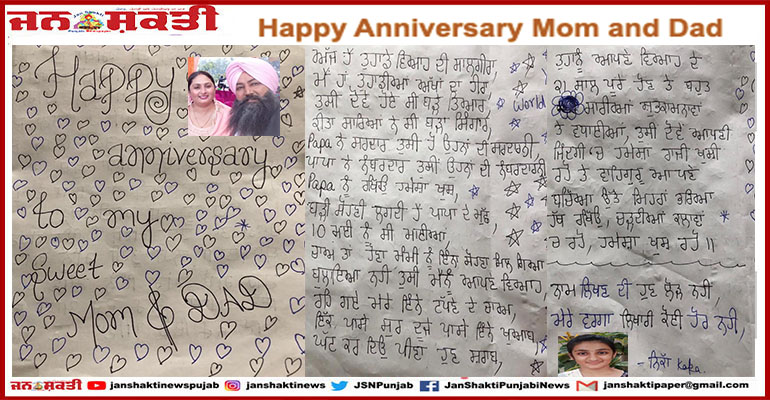 ਜਨ ਸ਼ਕਤੀ
Happy Anniversary Mom and Dad
Happy
anniversary
to my
Sweet
Mom & DAD
ਅੱਜ ਹੈ ਤੁਹਾਡੇ ਵਿਆਹ ਦੀ ਸਾਲਗੀਰਾ,
ਮੈਂ ਹਾਂ ਤੁਹਾਡੀਆਂ ਅੱਖਾਂ ਦਾ ਹੀਰਾ,
ਤੁਸੀਂ ਦੋਵੇਂ ਹੋਏ ਸੀ ਬੜੇ ਤਿਆਰ,
ਕੀਤਾ ਸਾਰਿਆਂ ਨੇ ਸੀ ਬੜਾ ਸ਼ਿੰਗਾਰ,
Papa ਨੇ ਸਰਦਾਰ ਤੁਸੀਂ ਹੋ ਉਹਨਾਂ ਦੀ ਸਰਦਾਰਨੀ
ਪਾਪਾ ਨੇ ਨੰਬਰਦਾਰ ਤੁਸੀਂ ਉਹਨਾਂ ਦੀ ਨੰਬਰਦਾਰਨੀ
Papa ਨੂੰ ਰੱਖਿਓ ਹਮੇਸ਼ਾ ਖੁਸ਼,
ਬੜੀ ਸੋਹਣੀ ਲਗਦੀ ਹੈ ਪਾਪਾ ਦੇ ਮੁੱਛ
10 ਮਈ ਨੂੰ ਸੀ
ਚਾਅ ਤਾਂ ਹੋਣਾ ਮੰਮੀ ਨੂੰ ਇੰਨਾ ਸੋਹਣਾ ਮਿਲ ਗਿਆ
ਬੁਲਾਇਆ ਨਹੀਂ ਤੁਸੀਂ ਮੈਨੂੰ ਆਪਣੇ ਵਿਆਹ,
ਰਹਿ ਗਏ ਮੇਰੇ ਇੰਨੇ ਟੱਪਣੇ ਦੇ ਚਾਅ,
ਇੱਕ ਪਾਸੇ ਦੂਜੇ ਪਾਸੇ ਇੰਨੇ ਖੁਆਬ,
ਘੱਟ ਕਰ ਦਿਓ ਪੀਣਾ ਹੁਣ ਸ਼ਰਾਬ,
World
ਤੁਹਾਨੂੰ ਆਪਣੇ ਵਿਆਹ ਦੇ
ਸਾਲ ਪੂਰੇ ਹੋਣ ਤੇ ਬਹੁਤ
ਸਾਰੀਆਂ ਸ਼ੁਭਕਾਮਨਾਵਾਂ
ਤੇ ਵਧਾਈਆਂ, ਤੁਸੀਂ ਦੋਵੇਂ ਆਪਣੀ
ਜ਼ਿੰਦਗੀ 'ਚ ਹਮੇਸ਼ਾ ਰਾਜ਼ੀ ਖੁਸ਼ੀ
ਰਹੋ ਤੇ ਵਾਹਿਗੁਰੂ ਆਪਣੇ
ਬੱਚਿਆਂ ਉੱਤੇ ਮਿਹਰਾਂ ਭਰਿਆ
ਹੱਥ ਰੱਖਿਓ, ਚੜ੍ਹਦੀਆਂ ਕਲਾਵਾਂ
ਚ ਰਹੋ, ਹਮੇਸ਼ਾ ਖੁਸ਼ ਰਹੋ।।
ਨਾਮ ਲਿਖਣ ਦੀ ਹੁਣ ਲੋੜ ਨਹੀਂ,
ਮੇਰੇ ਵਰਗਾ ਲਿਖਾਰੀ ਕੋਈ ਹੋਰ ਨਹੀਂ,
- ਨਿੱਕਾ Kaka.
ਜਨ ਸ਼ਕਤੀ janshaktinewspujab janshaktinews JSNPunjab JanShaktiPunjabiNews janshaktipaper@gmail.com